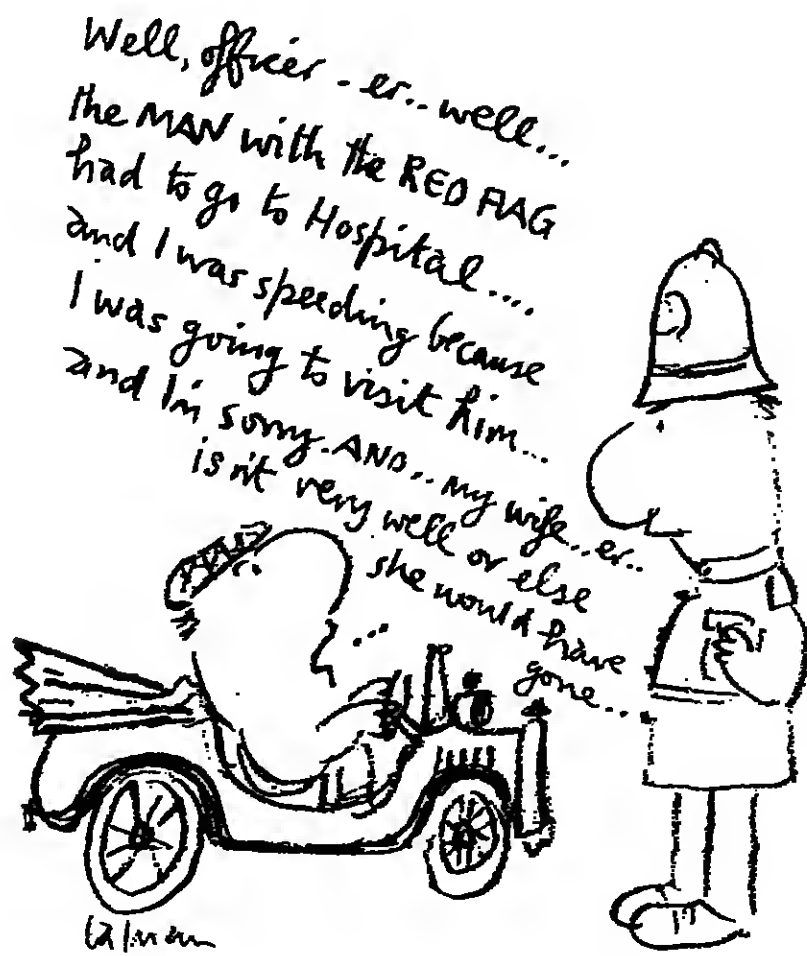 Well, officer - er.. well...
the MAN with the RED FLAG
had to go to Hospital....
and I was speeding because
I was going to visit him...
and I'm sorry. AND.. my wife..er..
isn't very well or else
she would have
gone...
...
calman